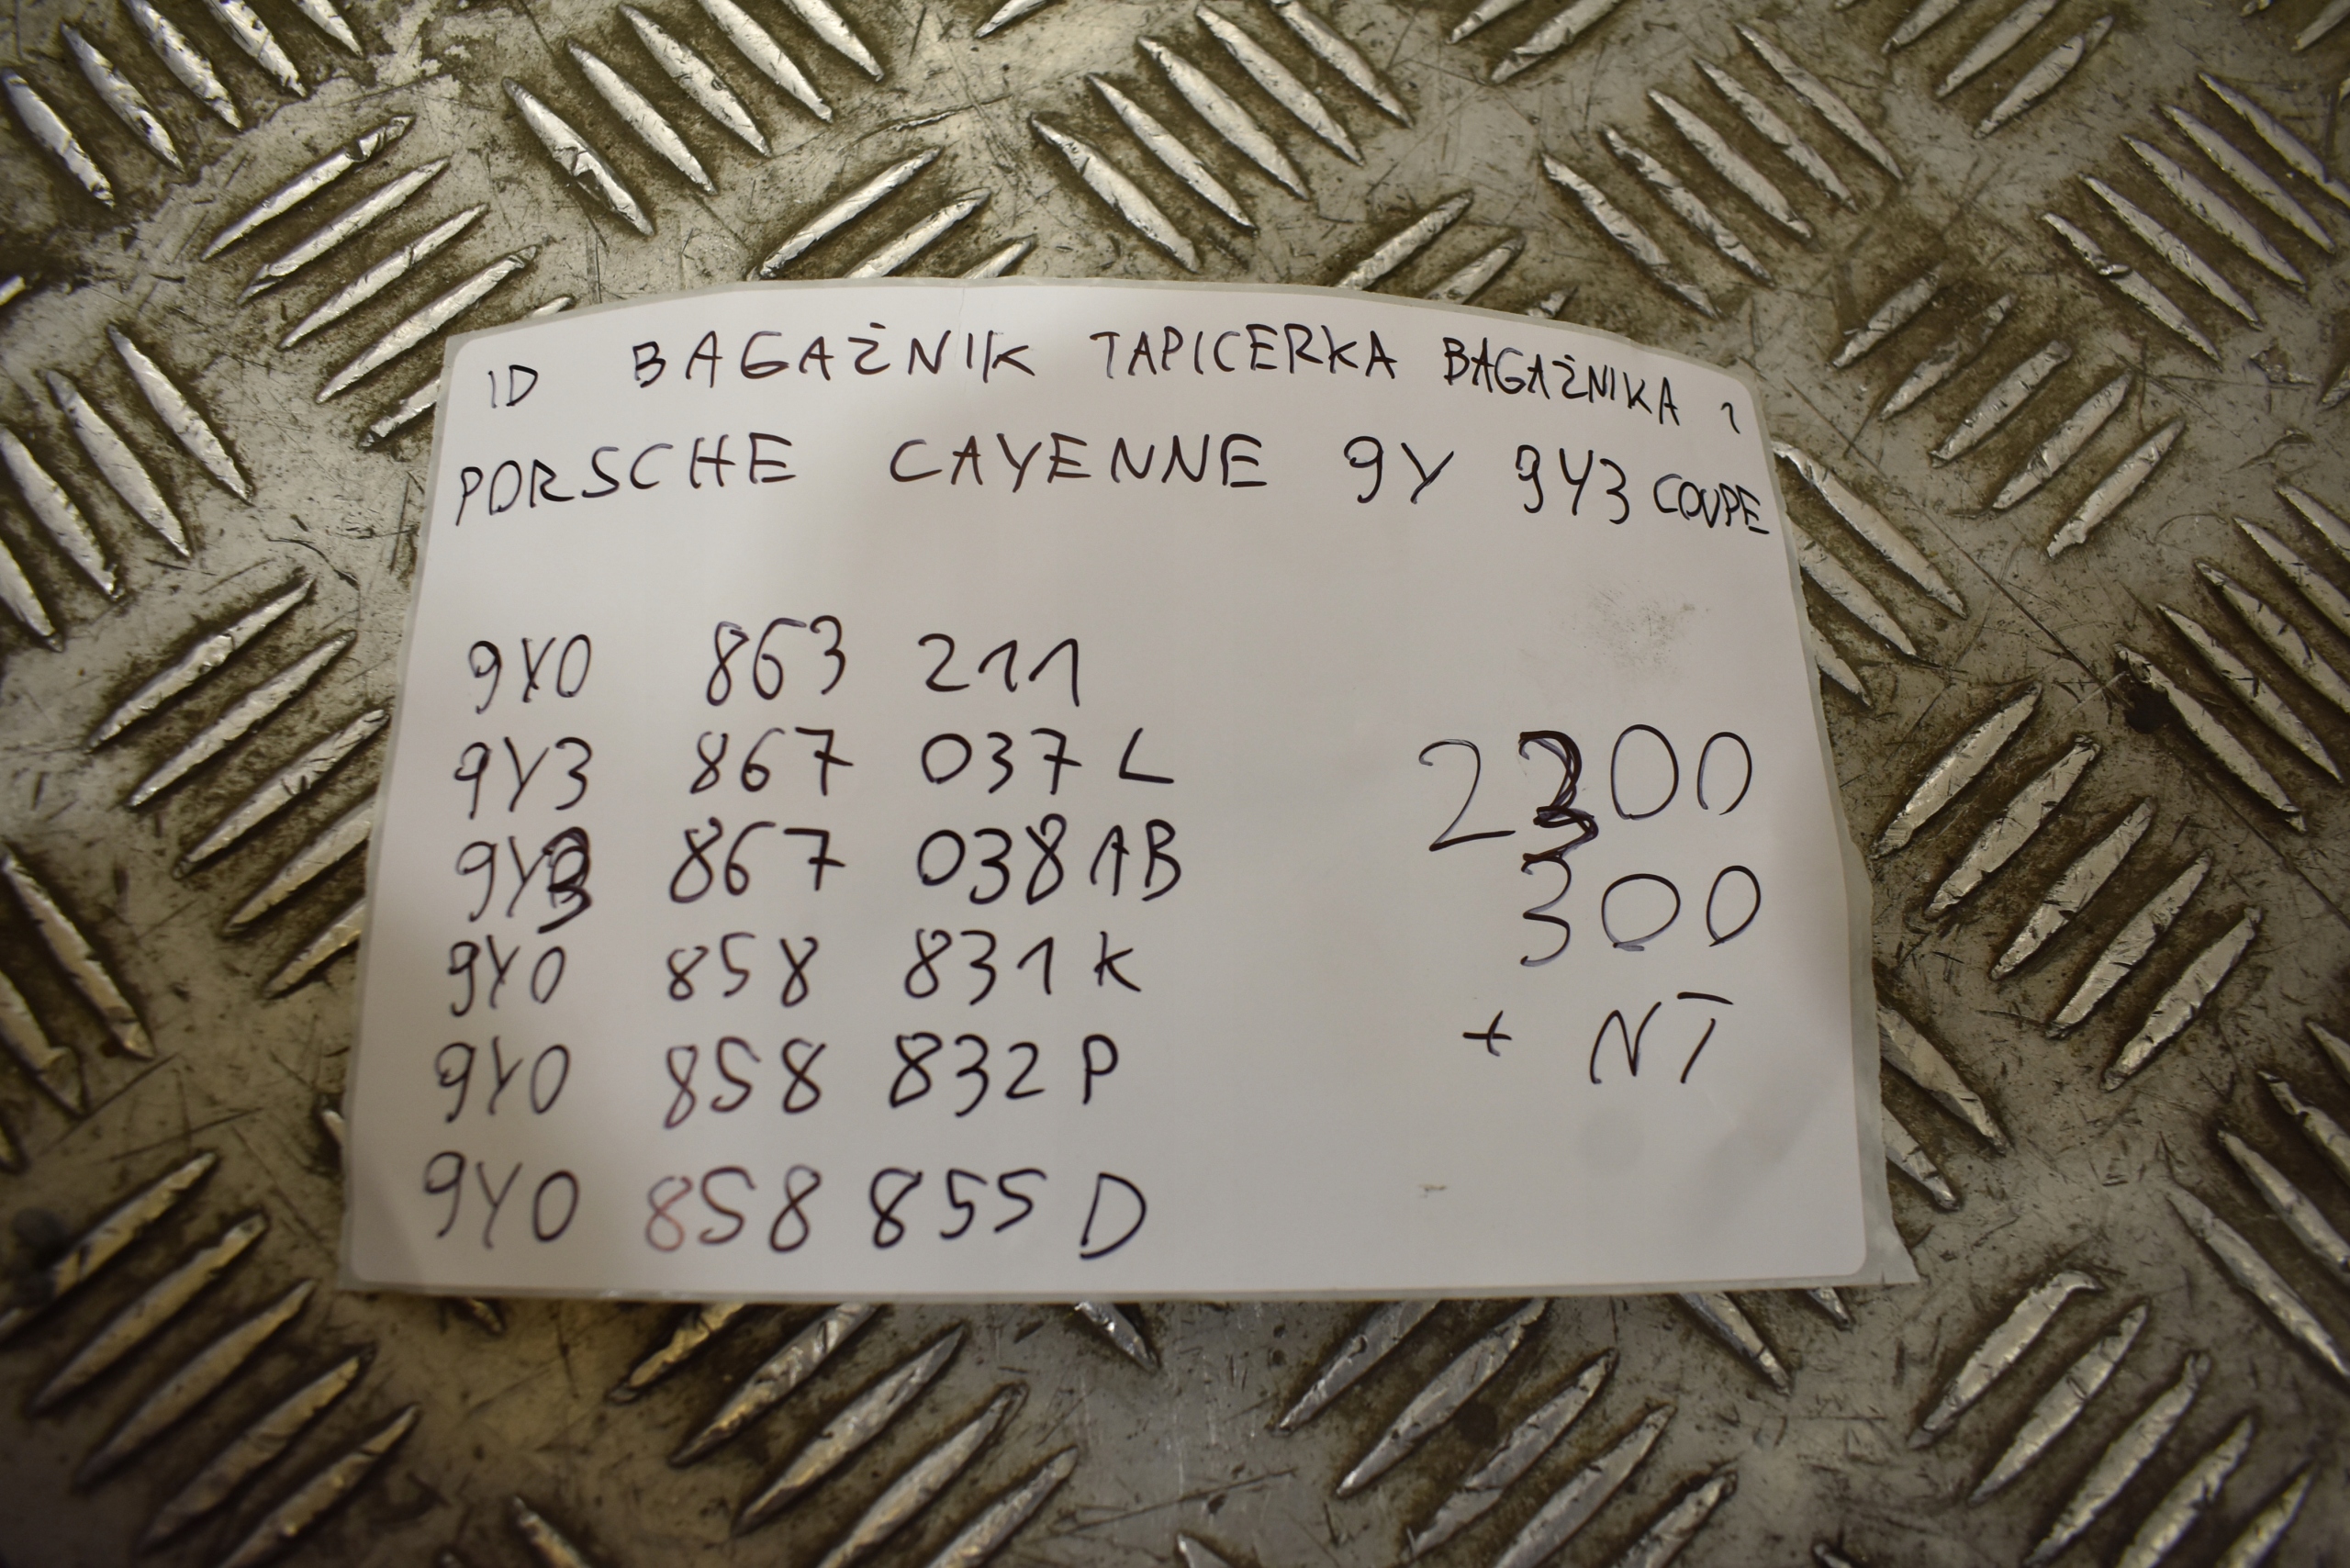 ID BAGAŻNIK TAPICERKA BAGAŻNIKA 1
PORSCHE CAYENNE 9Y 9Y3 COUPE
9Y0 863 211
9Y3 867 037 L
9Y3 867 038 AB
9Y0 858 831 K
9Y0 858 832 P
9Y0 858 855 D
2300
300
+ NT